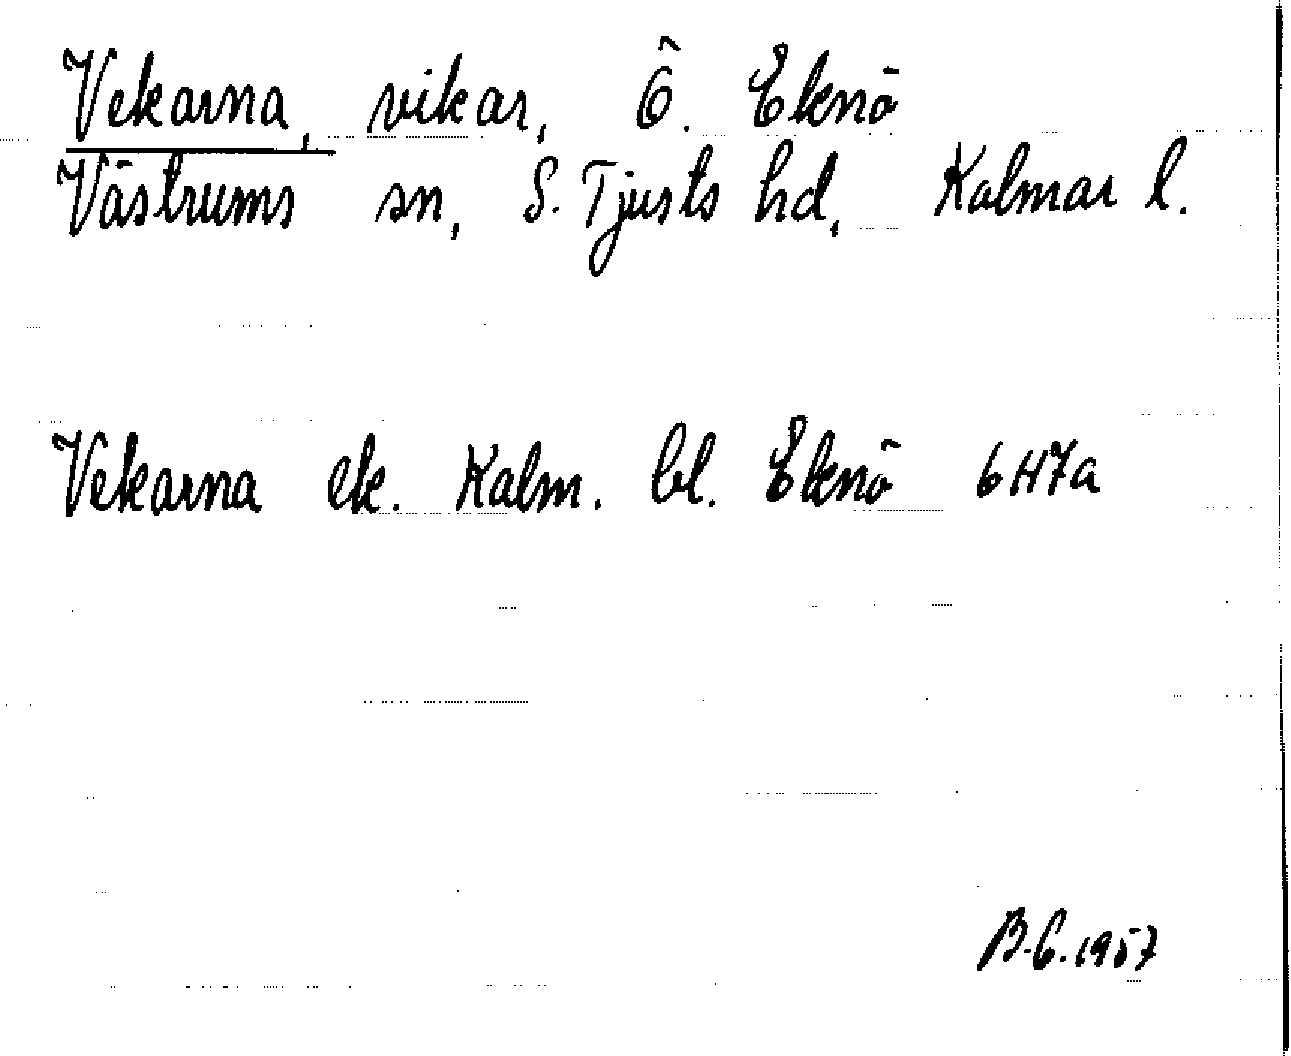 Vekarna, vikar, Ö. Eknö
Västrums sn, S. Tjusts hd, Kalmar l.
Vekarna ek. Kalm. bl. Eknö 6H7a
B.G. 1957